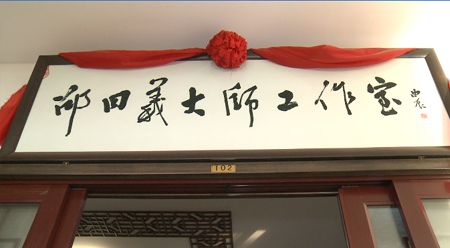 邵田義大師工作室
102